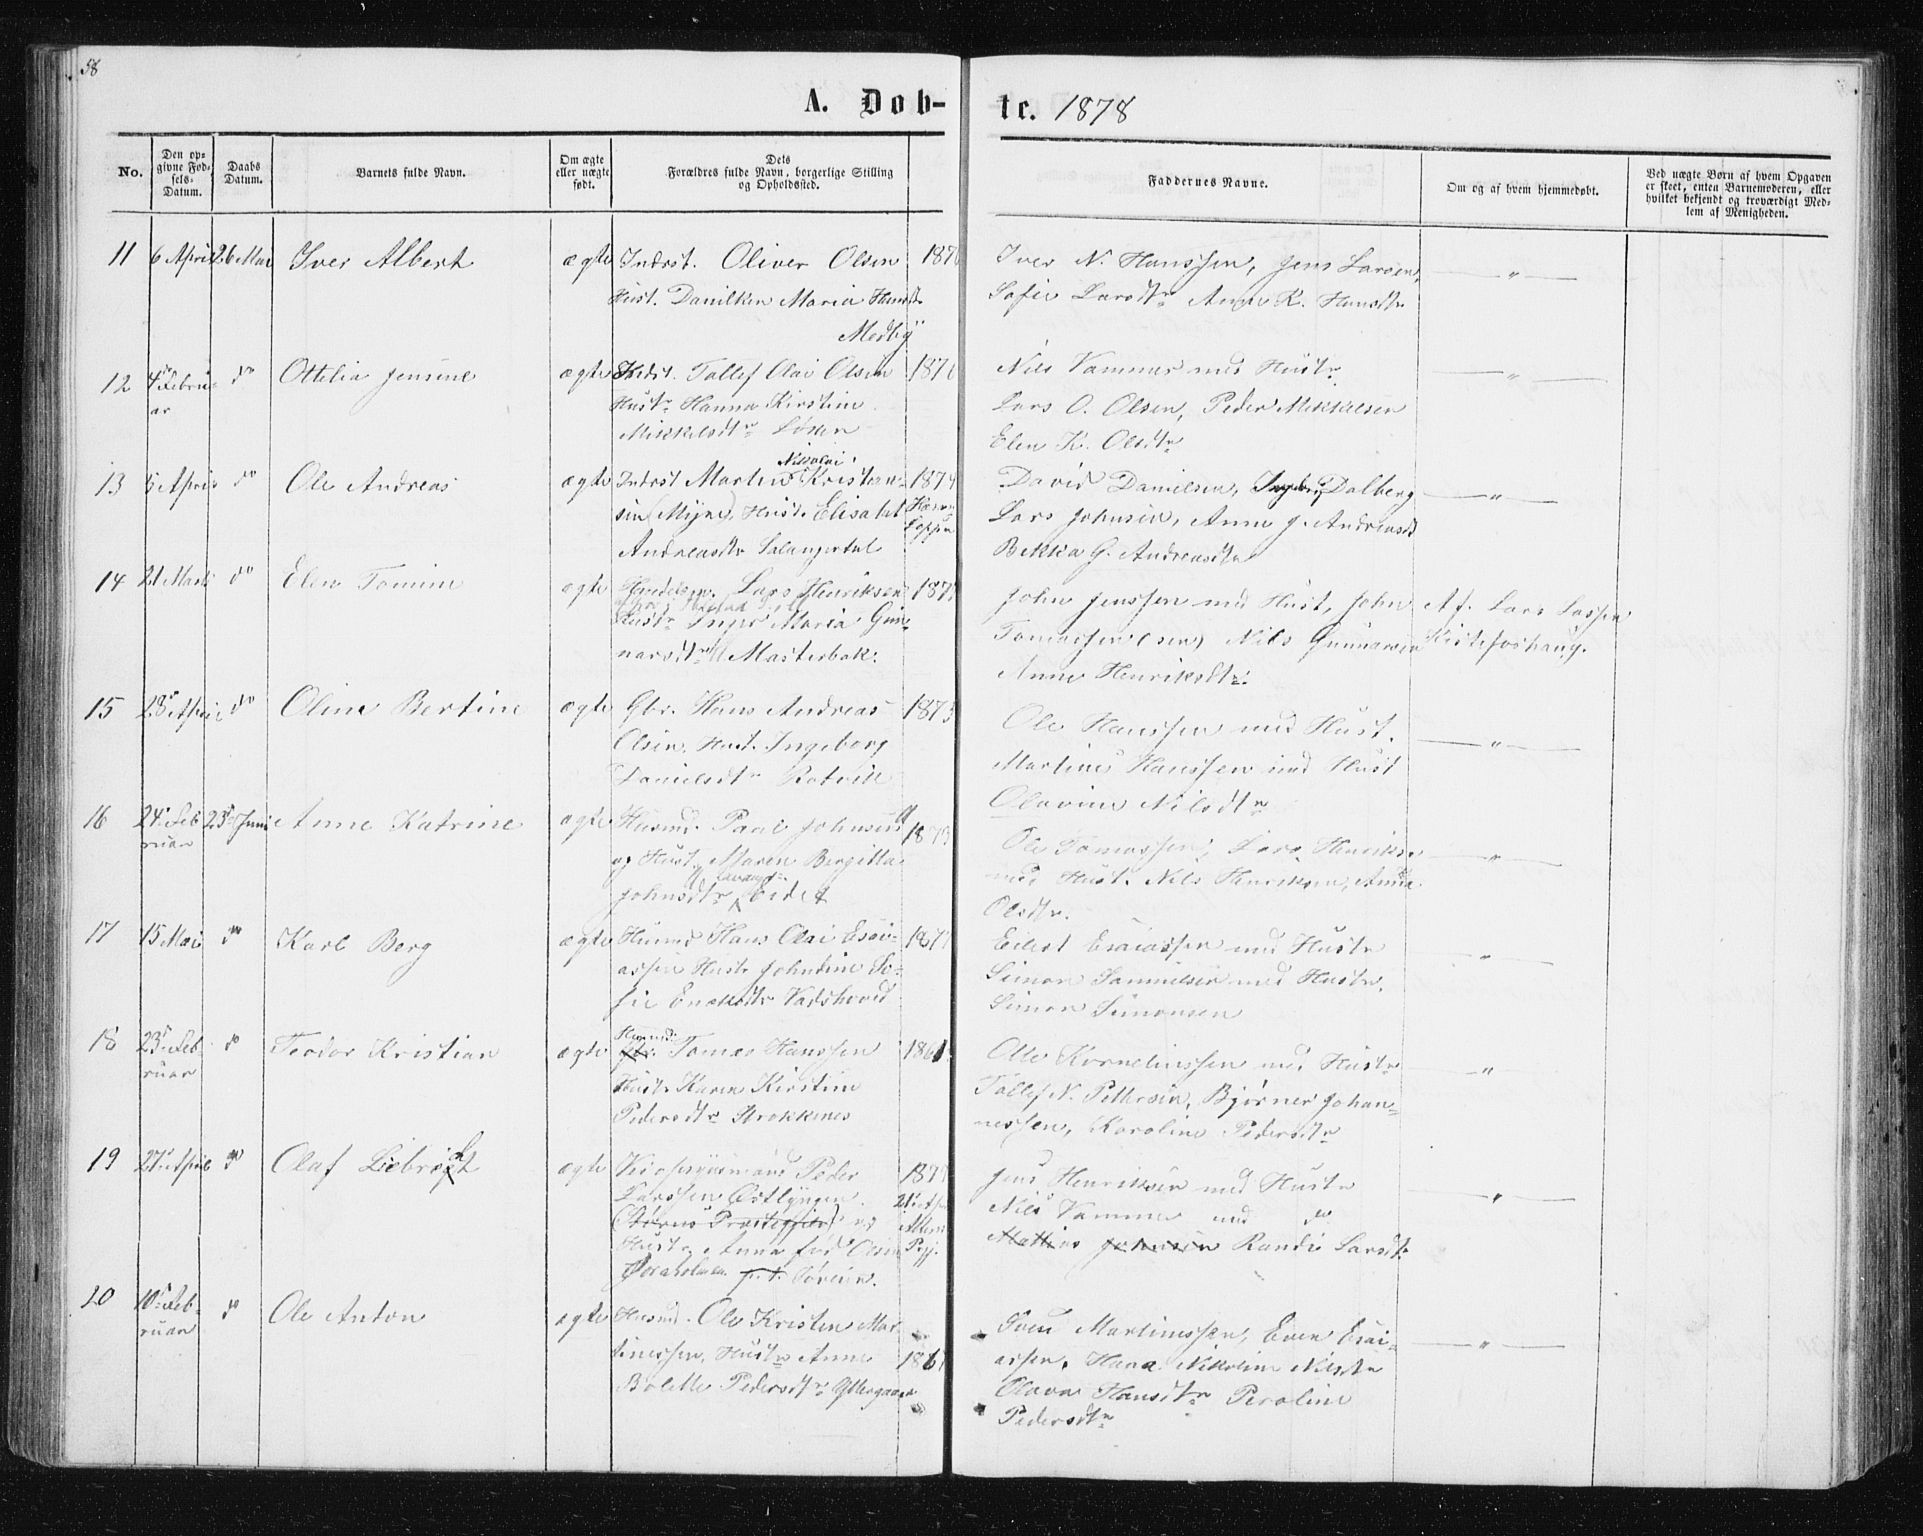 58
A. Døb-
te. 1878
No.
Den op-
givne Fød-
sels-
Datum.
Daabs
Datum.
Barnets fulde Navn.
Om ægte
eller uægte
født.
Dets
Forældres fulde Navn, borgerlige Stilling
og Opholdssted.
Faddernes Navne.
Om og af hvem hjemmedøbt.
Ved uægte Børn af hvem Opgaven
er skeet, enten Barnemoderen, eller
hvilket bekjendt og troværdigt Med-
lem af Menigheden.
11 6 April 26 Mai Iver Albert ægte Indrst. Oliver Olsen
Hust. Danilken Maria Hansdtr
Medby
Iver N. Hanssen, Jens Larsen,
Sofie Larsdtr Anne K. Hansdtr
— " —
12 4de Februar do Ottelia Jensine ægte Tollef Olai Olsen
Hustr Hanna Kirstine
Mikkelsdtr
Nils Vammer med Hustr.
Lars O. Olsen, Peder Mikkelsen
Elen K. Olsdtr
— " —
13 5 April do Ole Andreas ægte Indrst Martin Nikolai Kristian-
sen (Mijne), Hust. Elisabet
Andreasdtr Salangsdal
David Danielsen, Dalberg
Lars Johnsen, Anne J. Andreasdt
Bekka G. Andreasdtr
— " —
14 21 Marts do Elen Tomine ægte Lars Henriksen
Hustr Inger Maria Gun-
narsdtr Masterbak.
John Jenssen med Hust, John
Tomassen (sen) Nils Gunnarsen
Anne Henriksdtr.
Af Lars Lassen
Kistefoshaug.
15 28 April do Oline Bertine ægte Gbr. Hans Andreas 1873
Olsen, Hust. Ingeborg
Danielsdtr Rotvik
Ole Hanssen med Hust.
Martines Hanssen med Hust
Olavine Nilsdtr
— " —
16 24. Feb
ruar 23de Juni Anne Katrine ægte Husmd. Paal Johnsen
og Hust. Maren Bergitta
Johnsdtr Eidet
Ole Tomassen, Lars Henriks.
med Hust. Nils Henriksen, Anna
Olsdtr.
— " —
17 15 Mai do Karl Berg ægte Husmd Hans Olai Esai-
assen Hustr Johndine So-
fie Enoksdtr Vadshoved
Eilert Esaiassen med Hustr
Simon Samuelsen med Hustr.
Simon Simonsen
— " —
18 23de Feb-
ruar do Teodor Kristian ægte Husmd. Tomas Hanssen
Hust. Karen Kirstine
Pedersdtr Strokkenes
Olle Kornelinssen med Hustr
Tollef N. Pettersen, Bjørner Johan-
nessen, Karoline Pedersdtr
— " —
19 27. April do Olaf Liebrect ægte Peder
Larssen Østlyngen
Hustr Anna født Olsen
p. t. Sørreisa.
Jens Henriksen med Hustr
Nils Vammer med do
Mathias Johnsen Randi Larsdtr
— " —
20 10de Feb-
ruar do Ole Anton ægte Husmd. Ole Kristen Mar-
tinessen, Hustr Anne 1861
Bolette Pedersdtr Yttergaard
Sven Martinussen, Even Esai-
assen, Hana Nikoline Nilsdtr
Olava Hansdtr Peroline
Pedersdtr
— " —